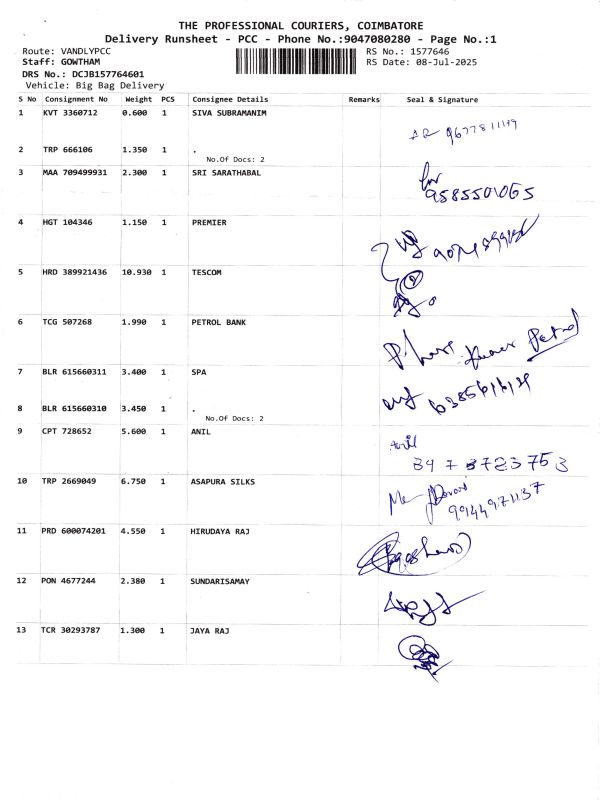 THE PROFESSIONAL COURIERS, COIMBATORE
Delivery Runsheet - PCC - Phone No.:9047080280 - Page No.:1
Route: VANDLYPCC RS No.: 1577646
Staff: GOWTHAM RS Date: 08-Jul-2025
DRS No.: DCJB157764601
Vehicle: Big Bag Delivery
S No Consignment No Weight PCS Consignee Details Remarks Seal & Signature
1 KVT 3360712 0.600 1 SIVA SUBRAMANIM
2 TRP 666106 1.350 1 .
No.Of Docs: 2
3 MAA 709499931 2.300 1 SRI SARATHABAL
9585501065
4 HGT 104346 1.150 1 PREMIER
5 HRD 389921436 10.930 1 TESCOM
6 TCG 507268 1.990 1 PETROL BANK
Petrol
7 BLR 615660311 3.400 1 SPA
8 BLR 615660310 3.450 1 .
No.Of Docs: 2
9 CPT 728652 5.600 1 ANIL
Anil
10 TRP 2669049 6.750 1 ASAPURA SILKS
9944971137
11 PRD 600074201 4.550 1 HIRUDAYA RAJ
12 PON 4677244 2.380 1 SUNDARISAMAY
13 TCR 30293787 1.300 1 JAYA RAJ